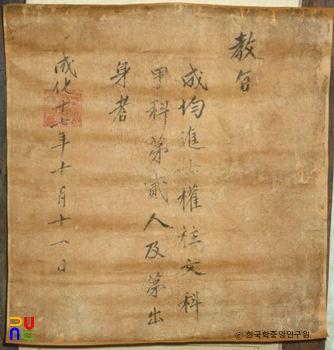 教旨
成均進士權柱文科
甲科第貳人及第出
身者
成化十七年十月十一日
© 한국학중앙연구원